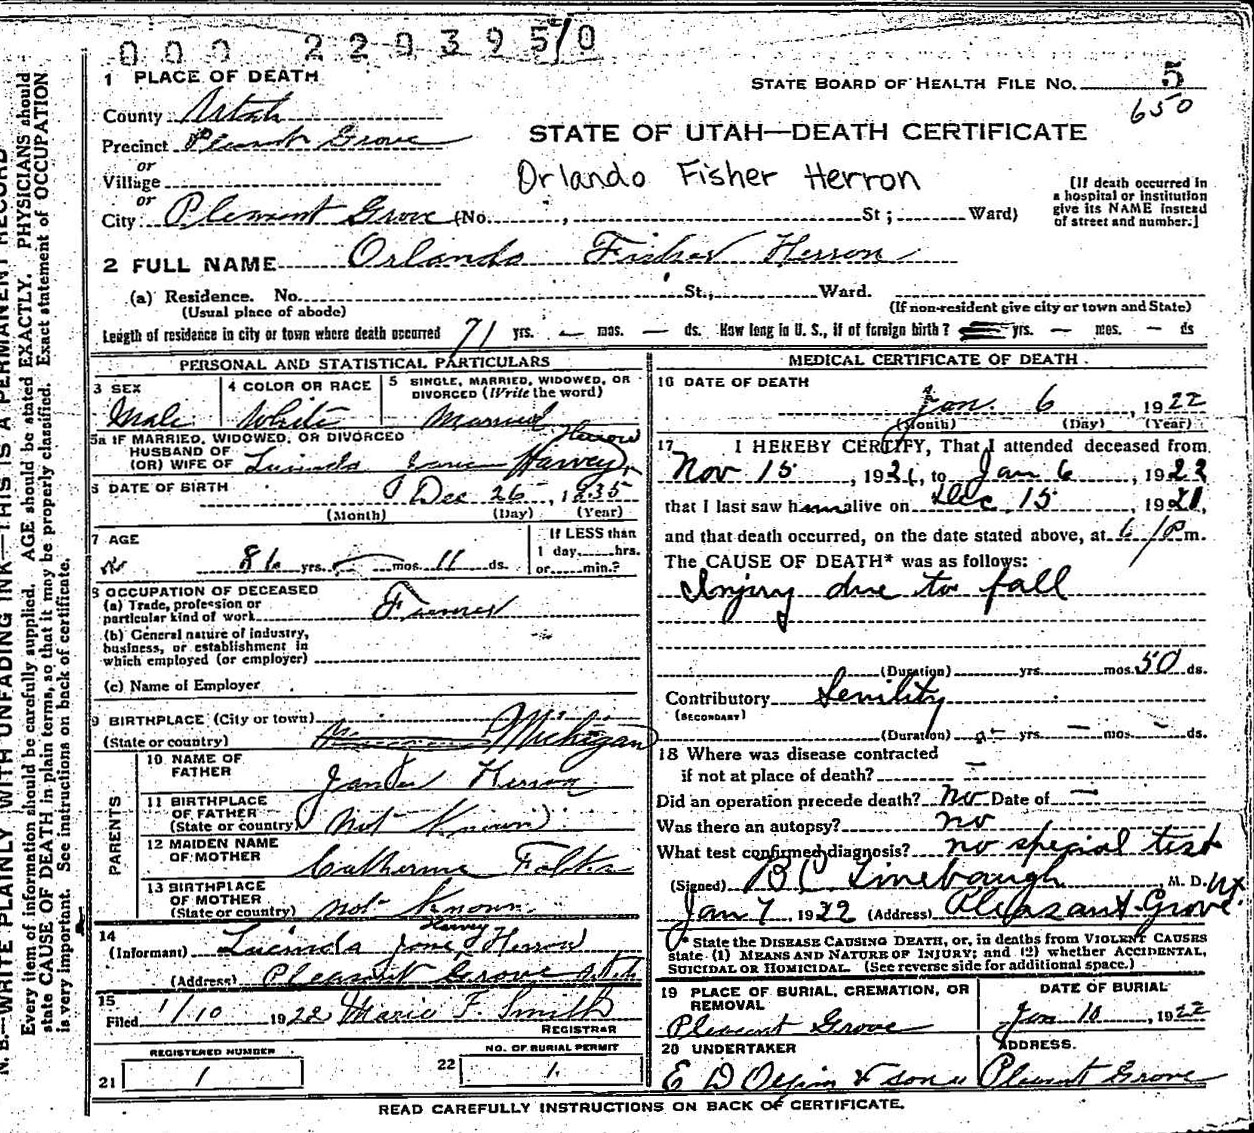 000 2203950
1 PLACE OF DEATH
STATE BOARD OF HEALTH FILE NO. 5
650
County Utah
Precinct Pleasant Grove
STATE OF UTAH—DEATH CERTIFICATE
or
Village
Orlando Fisher Herron
[If death occurred in a hospital or institution give its NAME instead of street and number.]
or
City Pleasant Grove (No. , St; Ward)
2 FULL NAME Orlando Fisher Herron
(a) Residence. No. St., Ward.
(Usual place of abode) (If non-resident give city or town and State)
Length of residence in city or town where death occurred 71 yrs. — mos. — ds. How long in U. S., if of foreign birth? yrs. — mos. — ds
PERSONAL AND STATISTICAL PARTICULARS
3 SEX
Male
4 COLOR OR RACE
White
5 SINGLE, MARRIED, WIDOWED, OR DIVORCED (Write the word)
Married
5a IF MARRIED, WIDOWED, OR DIVORCED
HUSBAND OF
(OR) WIFE OF Lucinda Jane Harvey Herron
6 DATE OF BIRTH Dec 26, 1835
(Month) (Day) (Year)
7 AGE
86 yrs. mos. 11 ds.
If LESS than
1 day, hrs.
or min.?
8 OCCUPATION OF DECEASED
(a) Trade, profession or
particular kind of work Farmer
(b) General nature of industry,
business, or establishment in
which employed (or employer)
(c) Name of Employer
9 BIRTHPLACE (City or town)
(State or country) Michigan
PARENTS
10 NAME OF
FATHER Herron
11 BIRTHPLACE
OF FATHER
(State or country) Not Known
12 MAIDEN NAME
OF MOTHER Catherine
13 BIRTHPLACE
OF MOTHER
(State or country) not Known
14
(Informant) Lucinda Jane Harvey Herron
(Address) Pleasant Grove Utah
15
Filed 1/10 1922 Marie F. Smith
REGISTRAR
REGISTERED NUMBER
21 1
NO. OF BURIAL PERMIT
22 1
MEDICAL CERTIFICATE OF DEATH.
16 DATE OF DEATH
Jan. 6, 1922
(Month) (Day) (Year)
17 I HEREBY CERTIFY, That I attended deceased from
Nov 15, 1921, to Jan 6, 1922
that I last saw him alive on Dec. 15, 1921,
and that death occurred, on the date stated above, at 6 P m.
The CAUSE OF DEATH* was as follows:
Injury due to fall
(Duration) yrs. mos. 50 ds.
Contributory Senility
(SECONDARY)
(Duration) yrs — mos — ds.
18 Where was disease contracted
if not at place of death? —
Did an operation precede death? No Date of —
Was there an autopsy? no
What test confirmed diagnosis? no special test
(Signed) B C Linebaugh M. D.
Jan 7, 1922 (Address) Pleasant Grove
* State the DISEASE CAUSING DEATH, or, in deaths from VIOLENT CAUSES
state (1) MEANS AND NATURE OF INJURY; and (2) whether ACCIDENTAL,
SUICIDAL OR HOMICIDAL. (See reverse side for additional space.)
19 PLACE OF BURIAL, CREMATION, OR
REMOVAL
Pleasant Grove
DATE OF BURIAL
Jan 10, 1922
20 UNDERTAKER
E D Olpin & sons
ADDRESS.
Pleasant Grove
READ CAREFULLY INSTRUCTIONS ON BACK OF CERTIFICATE.
N. B.—WRITE PLAINLY WITH UNFADING INK—THIS IS A PERMANENT RECORD
Every item of information should be carefully supplied. AGE should be stated EXACTLY. PHYSICIANS should
state CAUSE OF DEATH in plain terms, so that it may be properly classified. Exact statement of OCCUPATION
is very important. See instructions on back of certificate.